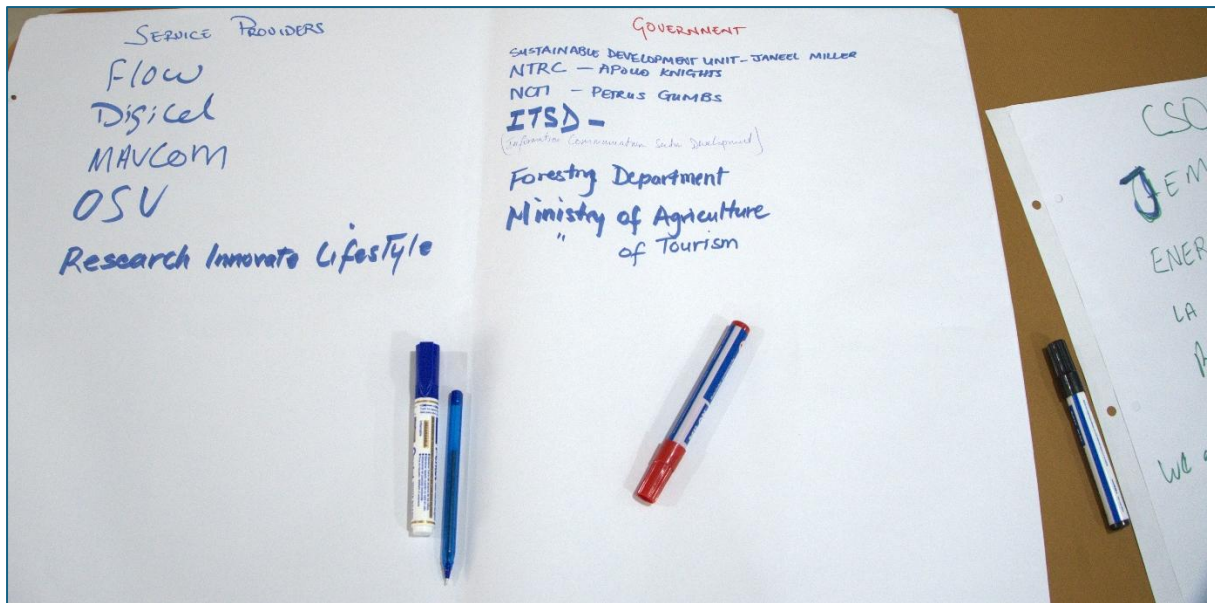 SERVICE PROVIDERS
Flow
Digicel
MAVCOM
OSV
Research Innovate Lifestyle
GOVERNMENT
SUSTAINABLE DEVELOPMENT UNIT - JANEEL MILLER
NTRC - APOLLO KNIGHTS
NCTI - PETRUS GUMBS
ITSD -
(Information Communication Development)
Forestry Department
Ministry of Agriculture
" of Tourism
CSO
ENER
LA
WC